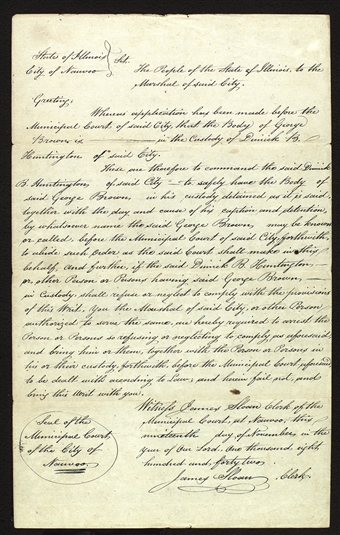 State of Illinois } Sct.
City of Nauvoo
The People of the State of Illinois, to the
Marshal of said City.
Greeting,
Whereas application has been made before the
Municipal Court of said City, that the Body of George
Brown is in the Custody of Dimick B.
Huntington of said City.
These are therefore to command the said Dimick
B. Huntington of said City to safely have the Body of
said George Brown, in his custody detained as it is said,
together with the day and cause of his caption and detention,
by whatsoever name the said George Brown, may be known
or called, before the Municipal Court of said City, forthwith,
to abide such order as the said Court shall make in this
behalf, and further, if the said Dimick B. Huntington
or other Person or Persons having said George Brown
in Custody, shall refuse or neglect to comply with the provisions
of this Writ, You the Marshal of said City, or other Person
authorized to serve the same, are hereby required to arrest the
Person or Persons so refusing or neglecting to comply as aforesaid,
and bring him or them, together with the Person or Persons in
his or their custody, forthwith, before the Municipal Court aforesaid
to be dealt with according to Law; and herein fail not, and
bring this Writ with you.
Witness James Sloan Clerk of the
Municipal Court, at Nauvoo, this
nineteenth day of November, in the
year of Our Lord, One thousand eight
hundred and forty two.
James Sloan, Clerk
Seal of the
Municipal Court,
of the City of
Nauvoo